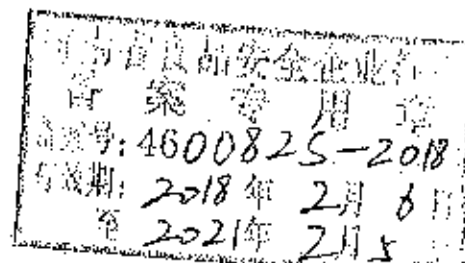 河南省食品安全企业标
备案专用章
备案号:4600825-2018
有效期:2018年2月6日
至2021年2月5